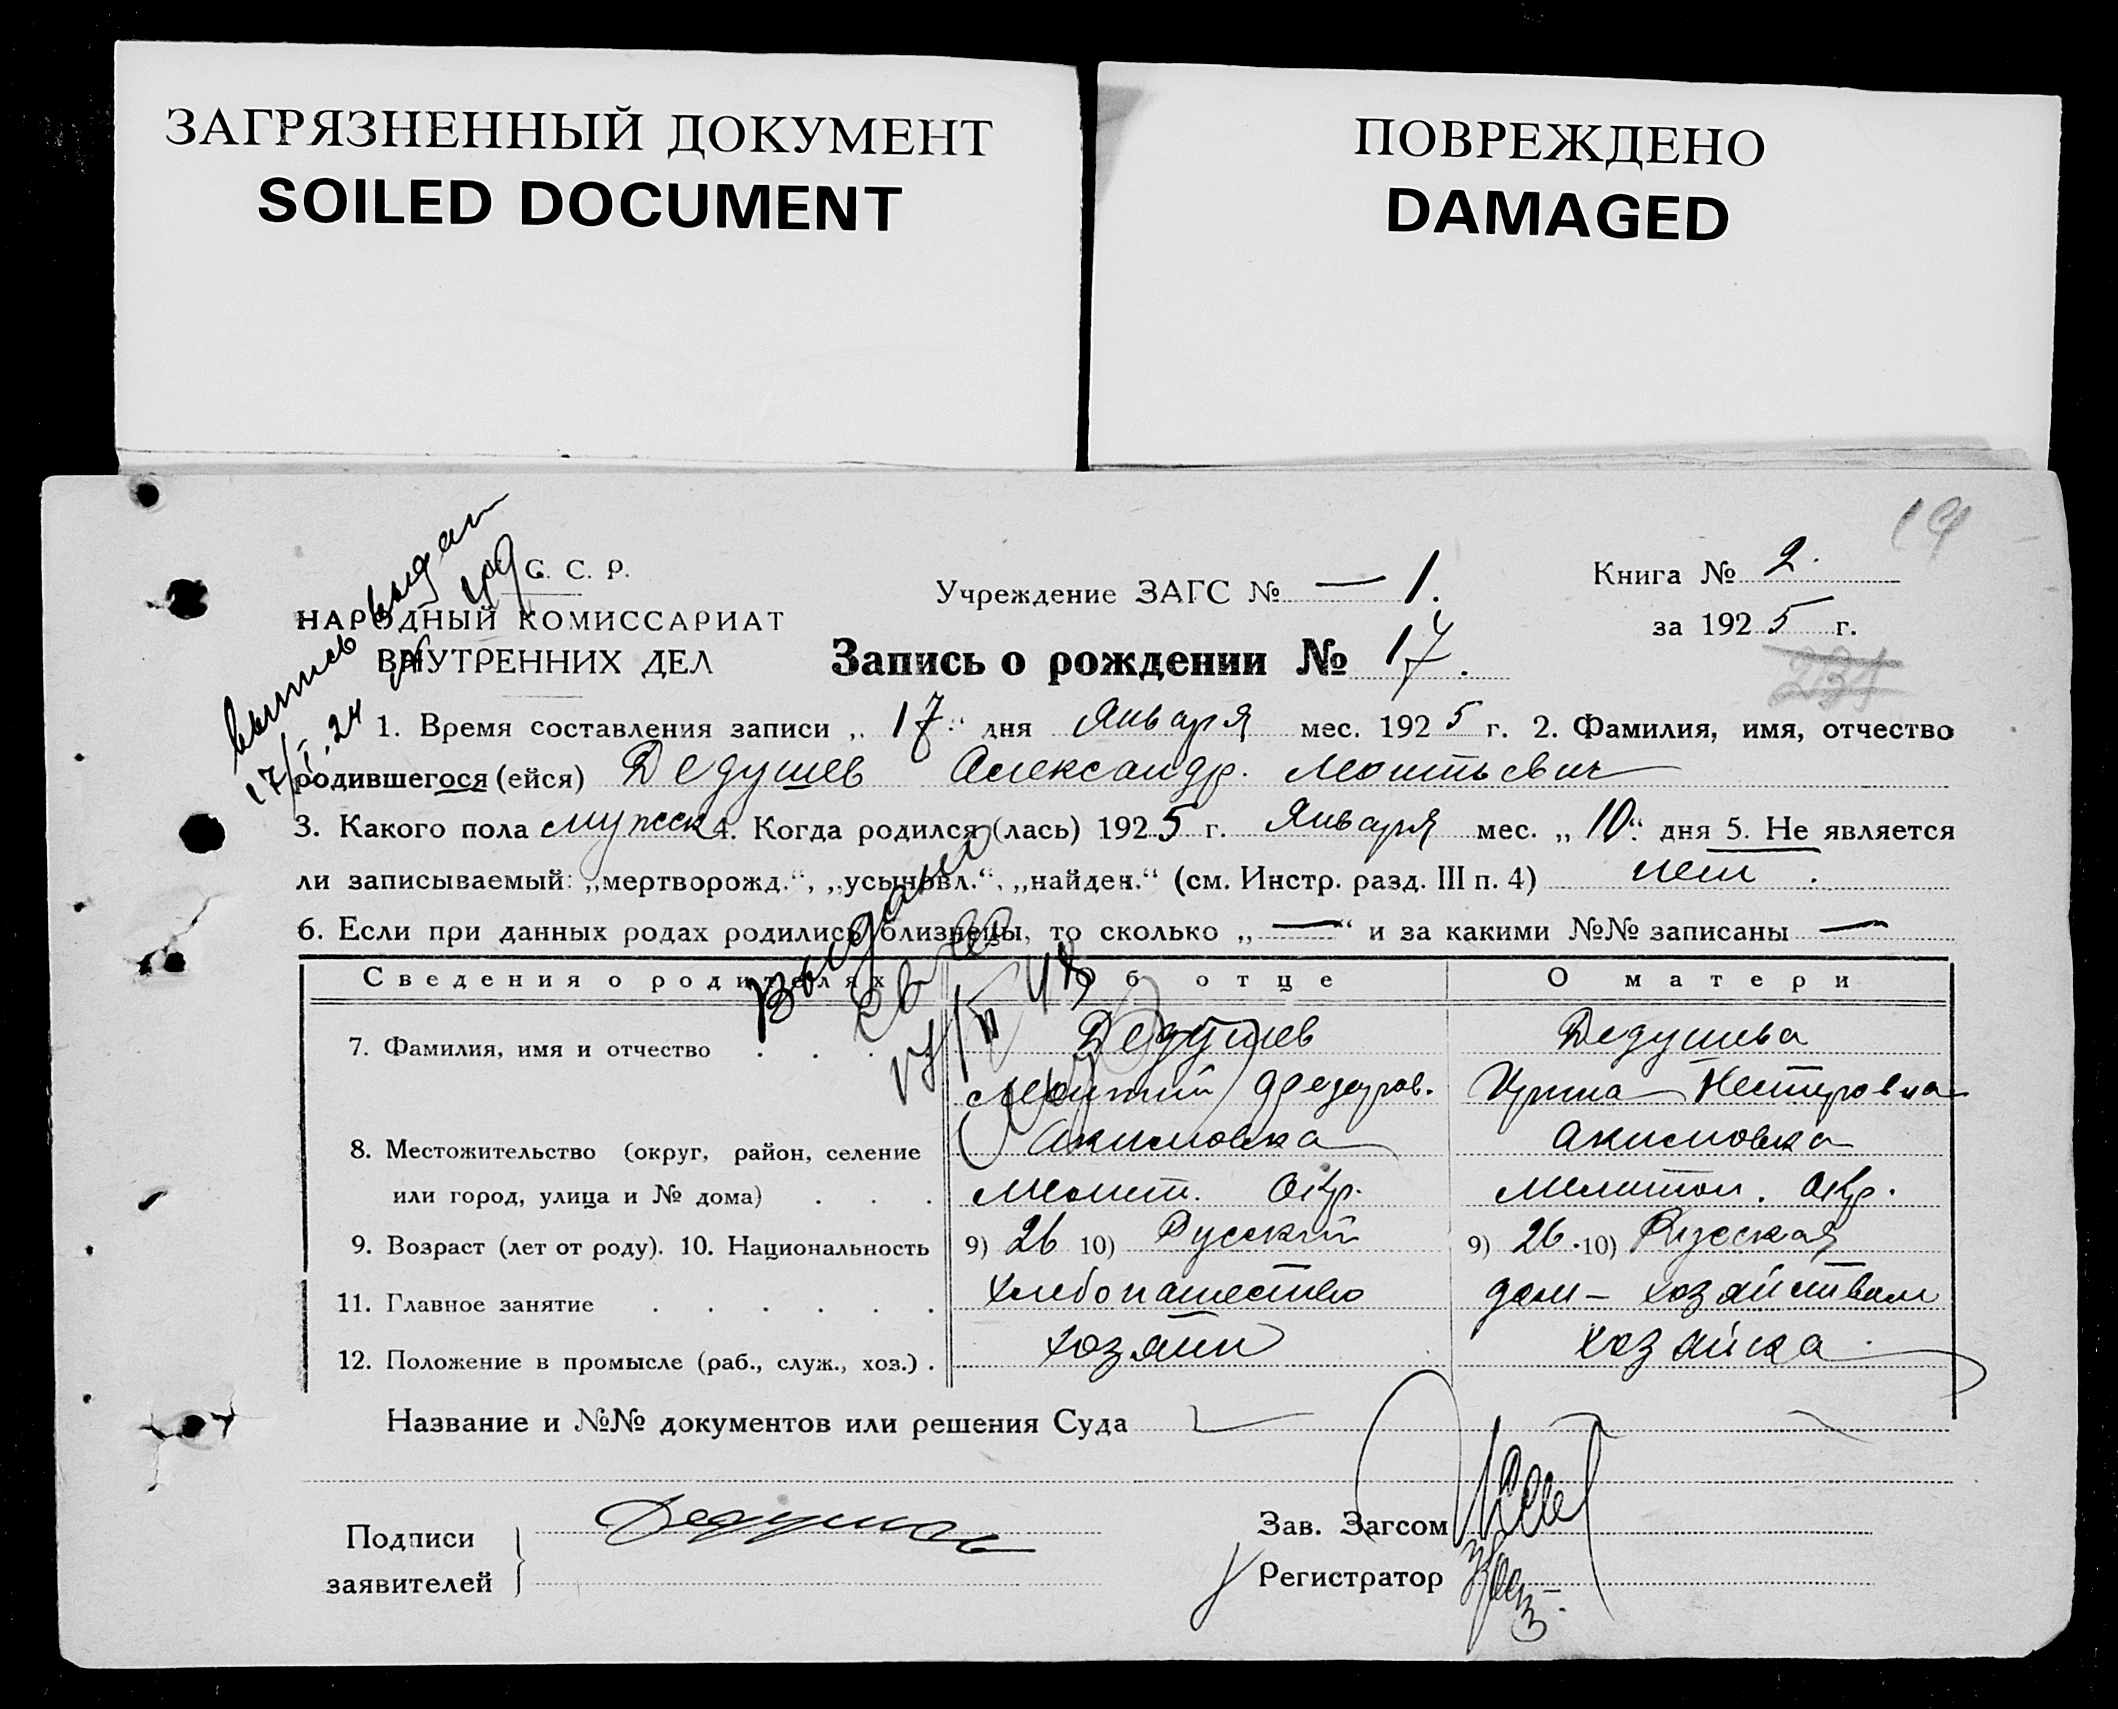 ЗАГРЯЗНЕННЫЙ ДОКУМЕНТ
SOILED DOCUMENT
ПОВРЕЖДЕНО
DAMAGED
19
С. С. Р.
НАРОДНЫЙ КОМИССАРИАТ
ВНУТРЕННИХ ДЕЛ
Учреждение ЗАГС № — 1.
Книга № 2.
за 1925 г.
Запись о рождении № 17.
234
1. Время составления записи „17“ дня Января мес. 1925 г. 2. Фамилия, имя, отчество
родившегося (ейся) Дедушев Александр.
3. Какого пола мужск 4. Когда родился (лась) 1925 г. Января мес. „10“ дня 5. Не является
ли записываемый: „мертворожд.“, „усыновл.“, „найден.“ (см. Инстр. разд. III п. 4) нет.
6. Если при данных родах родились близнецы, то сколько „—“ и за какими №№ записаны —
Сведения о родителях Об отце О матери
7. Фамилия, имя и отчество . . . Дедушев Дедушева
Федоров. Ирина Нестеровна
8. Местожительство (округ, район, селение Акимовка Акимовка
или город, улица и № дома) . . . Мелит. Окр. Мелитоп. Окр.
9. Возраст (лет от роду). 10. Национальность 9) 26 10) Русский 9) 26. 10) Русская
11. Главное занятие . . . . . . Хлебопашество дом-хозяйством
12. Положение в промысле (раб., служ., хоз.) . хозяин хозяйка
Название и №№ документов или решения Суда
Подписи
заявителей
Дедушев
Зав. Загсом
Регистратор
Выпись выдан
Выданы